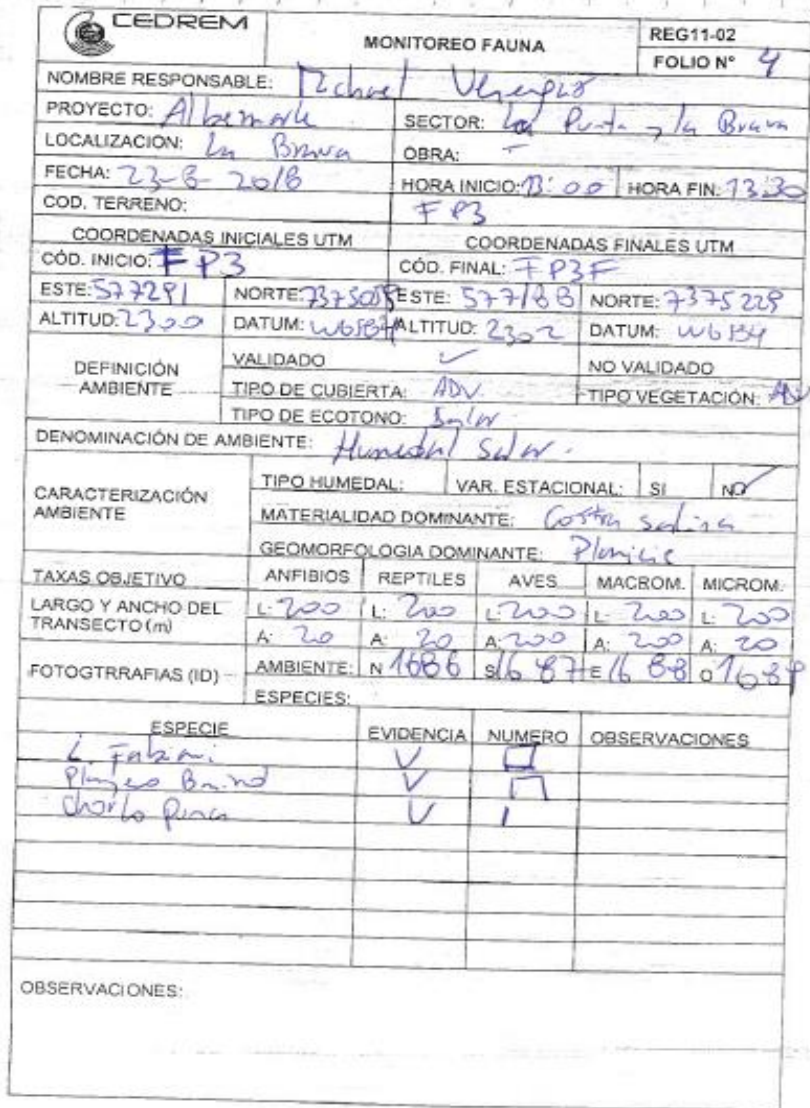 CEDREM
MONITOREO FAUNA
REG11-02
FOLIO N° 4
NOMBRE RESPONSABLE: Michael
PROYECTO: Albemarle SECTOR: La Punta y la Brava
LOCALIZACION: La Brava OBRA: -
FECHA: 23-8-2018 HORA INICIO: 13:00 HORA FIN: 13:30
COD. TERRENO: FP3
COORDENADAS INICIALES UTM COORDENADAS FINALES UTM
CÓD. INICIO: FP3 CÓD. FINAL: FP3F
ESTE: 577291 NORTE: ESTE: 577188 NORTE: 7375229
ALTITUD: 2300 DATUM: WGS84 ALTITUD: 2302 DATUM: WGS84
DEFINICIÓN AMBIENTE
VALIDADO ✓ NO VALIDADO
TIPO DE CUBIERTA: ADV. TIPO VEGETACIÓN: ADV
TIPO DE ECOTONO:
DENOMINACIÓN DE AMBIENTE: Humedal Salar.
CARACTERIZACIÓN AMBIENTE
TIPO HUMEDAL: VAR. ESTACIONAL: SI NO ✓
MATERIALIDAD DOMINANTE: Costra salina
GEOMORFOLOGIA DOMINANTE: Planicie
TAXAS OBJETIVO ANFIBIOS REPTILES AVES MACROM. MICROM.
LARGO Y ANCHO DEL TRANSECTO (m)
L: 200 L: 200 L: 200 L: 200 L: 200
A: 20 A: 20 A: 200 A: 200 A: 20
FOTOGTRRAFIAS (ID) AMBIENTE: N 1686 S 1687 E 1688 O 1689
ESPECIES:
ESPECIE EVIDENCIA NUMERO OBSERVACIONES
L. Fabiani. V
Playero Baird V
Chorlo Puna V I
OBSERVACIONES: